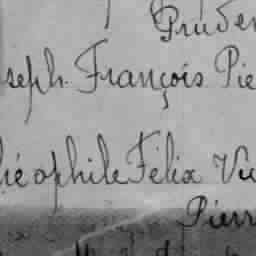 Pruden
seph François Pie
héophile Félix Vi
Pierr